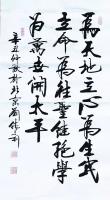 為天地立心為生民
立命為往聖繼絕學
為萬世開太平
辛丑仲秋於北京